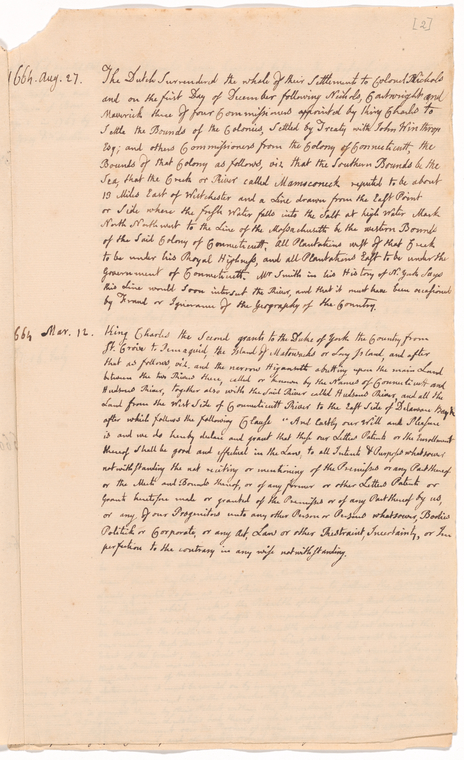 [2]
1664. Aug. 27. The Dutch Surrendered the whole of their Settlements to Colonel Nichols
and on the first Day of December following Nichols, Cartwright and
Maverick three of four Commissioners appointed by King Charles to
Settle the Bounds of the Colonies, Settled by Treaty with John Winthrop
Esqr; and others Commissioners from the Colony of Connecticutt, the
Bounds of that Colony as follows, viz. that the Southern Bounds be the
Sea, that the Creek or River called Mamaroneck reputed to be about
13 Miles East of Westchester and a Line drawn from the East Point
or Side where the fresh Water falls into the Salt at high Water Mark
North Northwest to the Line of the Massachusetts be the western Bounds
of the Said Colony of Connecticutt. All Plantations west of that Creek
to be under his Royal Highness, and all Plantations East to be under the
Government of Connecticutt. Mr Smith in his History of N. York Says
this Line would soon intersect the River, and that it must have been occasioned
by Fraud or Ignorance of the Geography of the Country.
664 Mar. 12. King Charles the Second grants to the Duke of York the Country from
St. Croix to Pemaquid, the Island of Matowacks or Long Island, and after
that as follows, viz. and the narrow Higansetts abutting upon the main Land
between the two Rivers there, called or known by the Names of Connecticutt and
Hudsons River, together also with the Said River called Hudsons River, and all the
Land from the West Side of Connecticutt River to the East Side of Delaware Bay &
after which follows the following Clause "And Lastly our Will and Pleasure
is and we do hereby declare and grant that these our Letters Patents or the Enrollment
thereof Shall be good and effectual in the Law, to all Intents & Purposes whatsoever
notwithstanding the not reciting or mentioning of the Premisses or any Part thereof
or the Meets and Bounds thereof, or of any former or other Letters Patents or
Grants heretofore made or granted of the Premisses or of any Part thereof by us,
or any of our Progenitors unto any other Person or Persons whatsoever, Bodies
Politick or Corporate, or any Act, Law or other Restraint, Incertainty, or Im
perfection to the contrary in any wise notwithstanding.